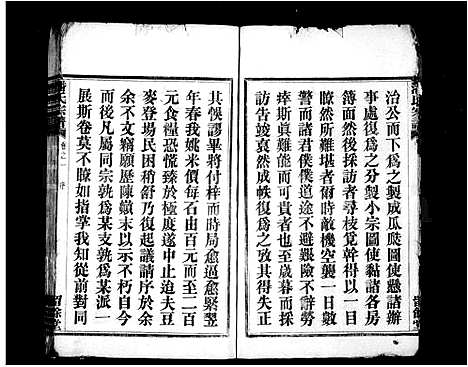 治公而下爲之製成瓜瓞圖使懸諸辦
事處復爲之分製小宗圖使黏諸各房
簿面然後採訪者尋枝覓幹得一目
瞭然所難堪者爾時敵機空襲一日數
警而諸君僕僕道途不避艱險不辭勞
瘁斯眞難能而可貴也至歲暮而採
訪告竣裒然成帙復爲之攷其得失正
其悞謬畢將付梓而時局愈逼愈緊翌
年春我姚米價每石由百元而至二百
元食糧恐慌臻於極度遂中止迨夫豆
麥登場民困稍舒乃復起議請序於余
余不文竊願歷陳顚末以示不朽自今
而後凡屬同宗孰爲某支孰爲某派一
展斯卷莫不瞭如指掌我知從前對同
潘氏宗譜
卷之一 序